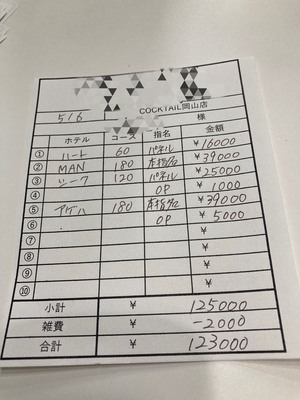 COCKTAIL岡山店
5/6 様
ホテル コース 指名 金額
① ハート 60 パネル ¥16000
② MAN 180 本指名 ¥39000
③ シーク 120 パネル ¥25000
④ OP ¥1000
⑤ アゲハ 180 本指名 ¥39000
⑥ OP ¥5000
⑦ ¥
⑧ ¥
⑨ ¥
⑩ ¥
小計 ¥ 125000
雑費 ¥ -2000
合計 ¥ 123000